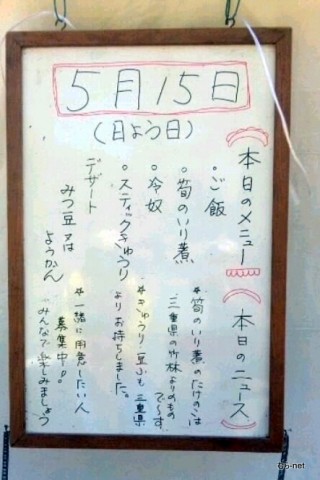 5月15日
(日よう日)
本日のメニュー
。ご飯
。筍のいり煮
。冷奴
。スティックきゅうり
デザート
みつ豆又は
ようかん
本日のニュース
*筍のいり煮のたけのこは
三重県の竹林よりのもの
で〜す
*きゅうり、豆ふも三重県
よりお持ちしました。
*一緒に用意したい人
募集中!!
みんなで楽しみましょう